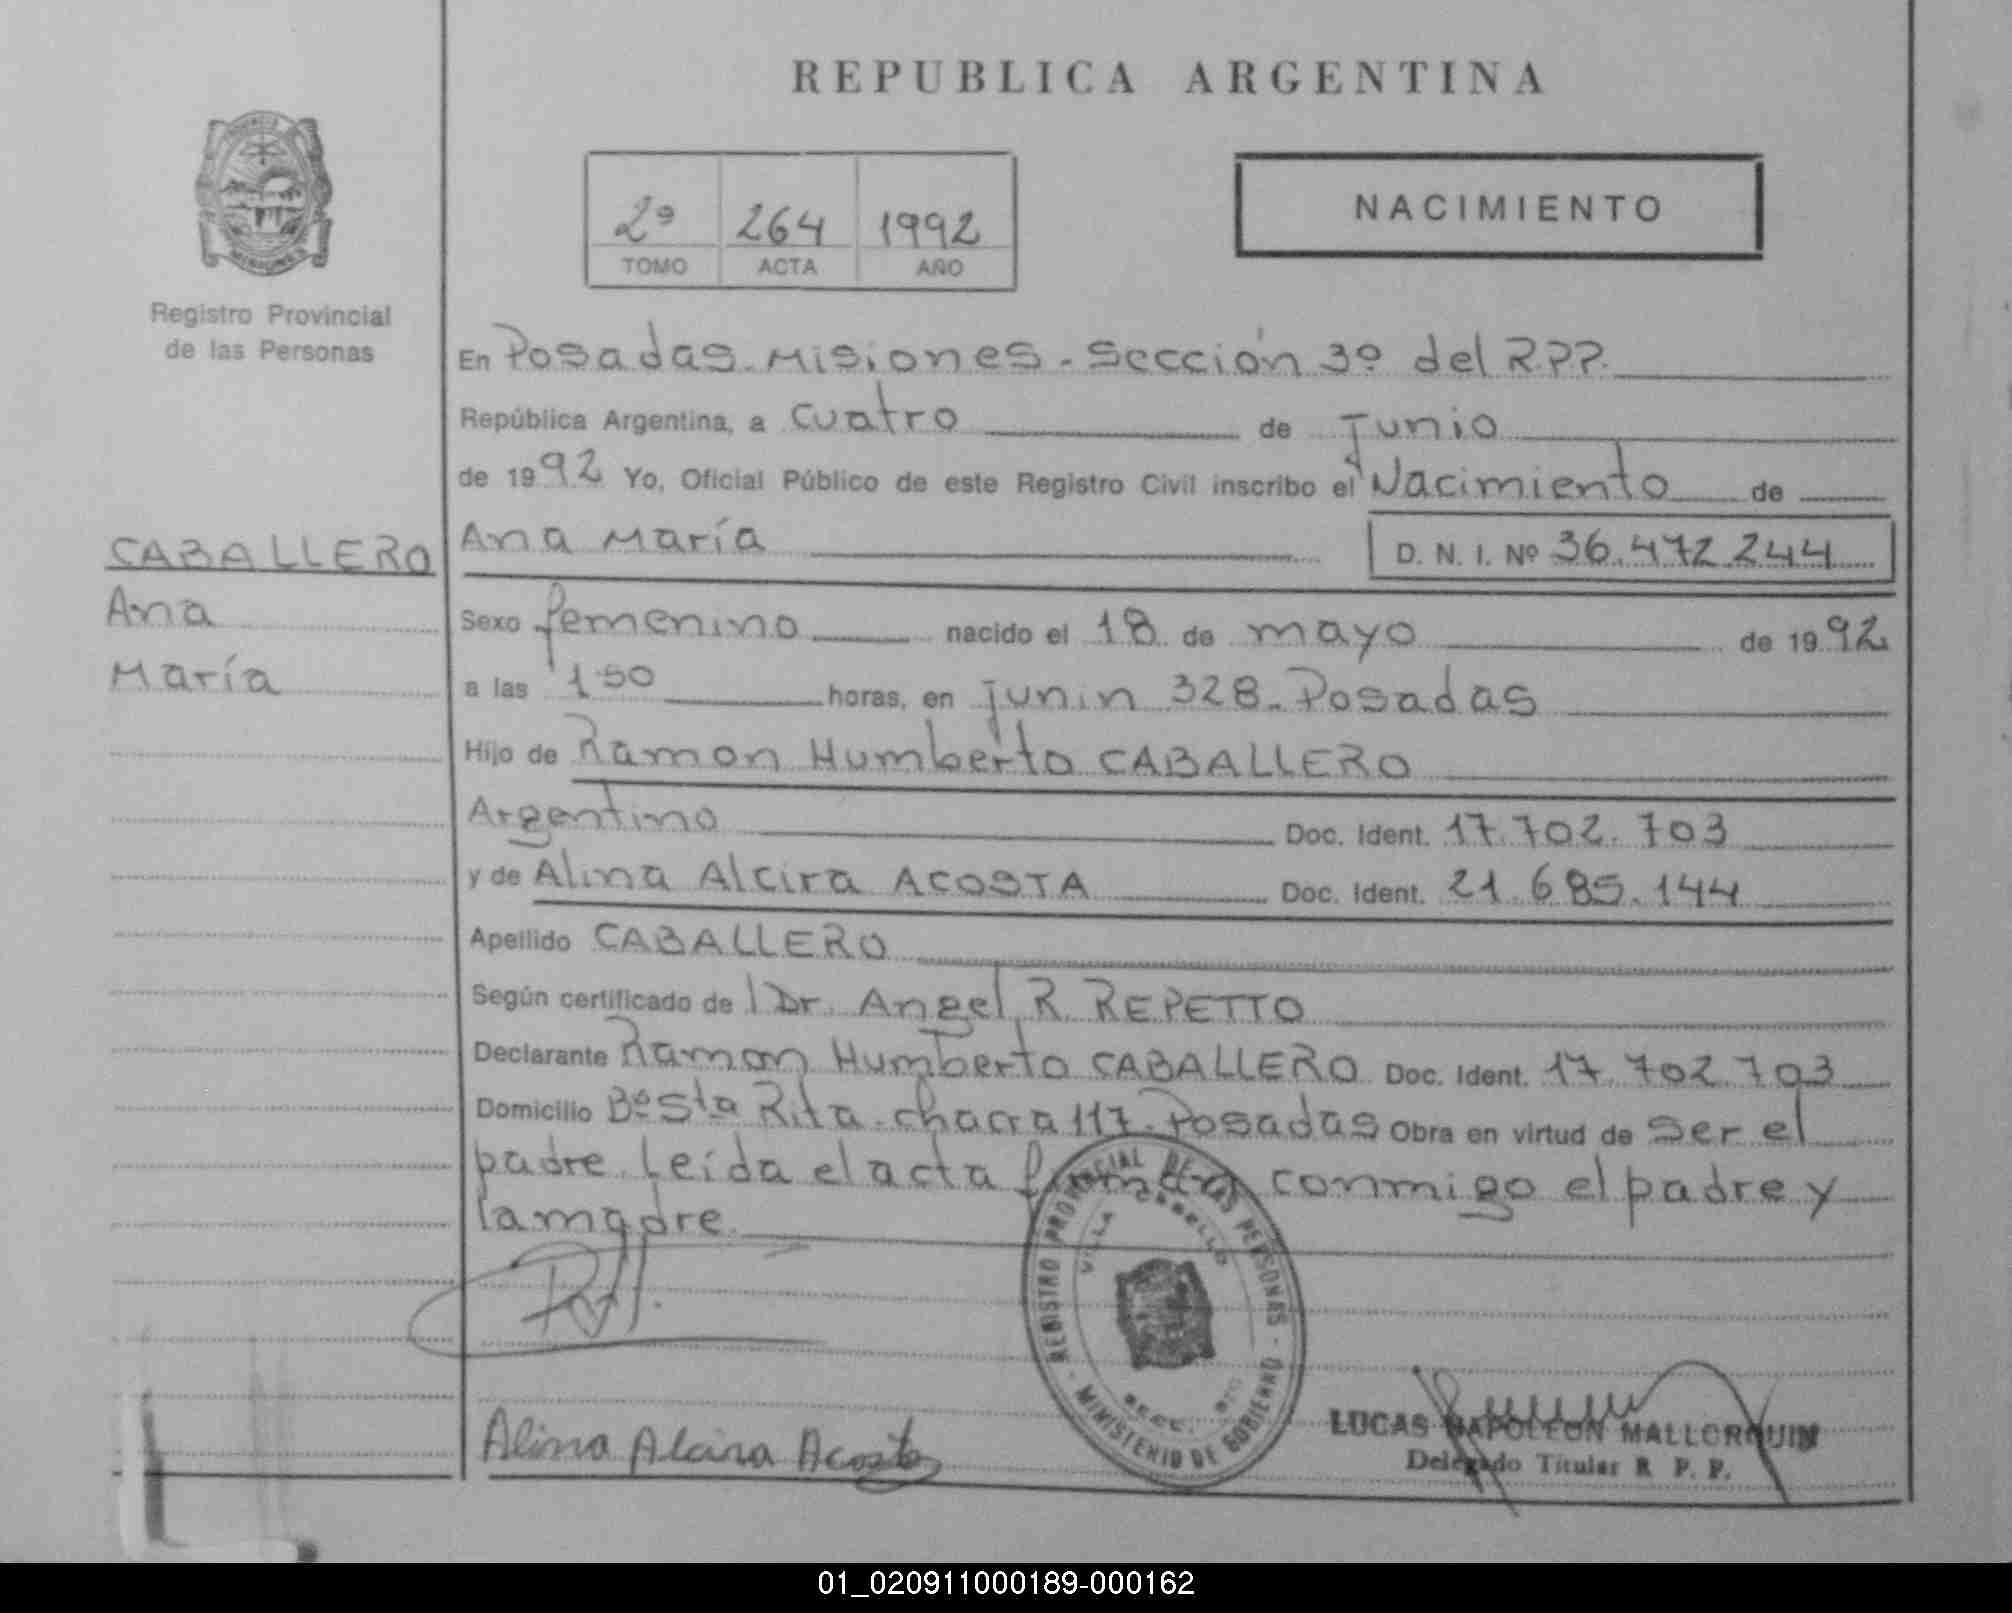 REPUBLICA ARGENTINA
2º 264 1992
TOMO ACTA AÑO
NACIMIENTO
Registro Provincial
de las Personas
CABALLERO
Ana
María
En Posadas - Misiones - Sección 3º del R.P.P.
República Argentina, a cuatro de junio
de 1992 Yo, Oficial Público de este Registro Civil inscribo el Nacimiento de
Ana María D. N. I. Nº 36.472.244
Sexo femenino nacido el 18 de mayo de 1992
a las 150 horas, en junin 328 - Posadas
Hijo de Ramon Humberto CABALLERO
Argentino Doc. Ident. 17.702.703
y de Alina Alcira ACOSTA Doc. Ident. 21.685.144
Apellido CABALLERO
Según certificado de Dr. Angel R. REPETTO
Declarante Ramon Humberto CABALLERO Doc. Ident. 17.702.703
Domicilio Bº Sta Rita - chacra 117 - Posadas Obra en virtud de ser el
padre. Leída el acta conmigo el padre y
la madre.
REGISTRO PROVINCIAL DE LAS PERSONAS - MINISTERIO DE GOBIERNO -
VILLA CABELLO
SECC.
Alina Alcira Acosta
LUCAS NAPOLEON MALLORQUIN
Delegado Titular R. P. P.
01_020911000189-000162